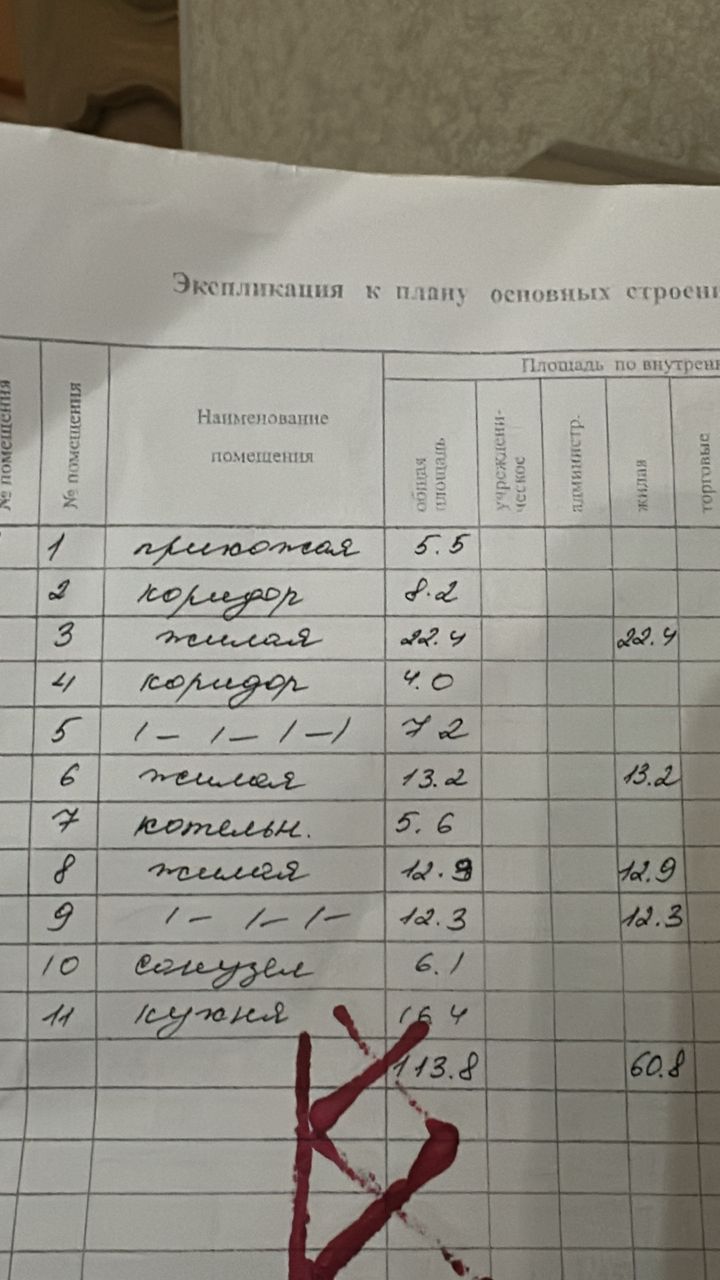 Экспликация к плану основных строени
№ помещения
№ помещения
Наименование помещения
Площадь по внутренн
общая площадь
учреждени-ческое
администр.
жилая
торговые
1 прихожая 5.5
2 коридор 8.2
3 жилая 22.4 22.4
4 коридор 4.0
5 1 – 1 – 1 – 1 7 2
6 жилая 13.2 13.2
7 котельн. 5.6
8 жилая 12.9 12.9
9 1 – 1 – 1 – 12.3 12.3
10 санузел 6.1
11 кухня 16 4
113.8 60.8